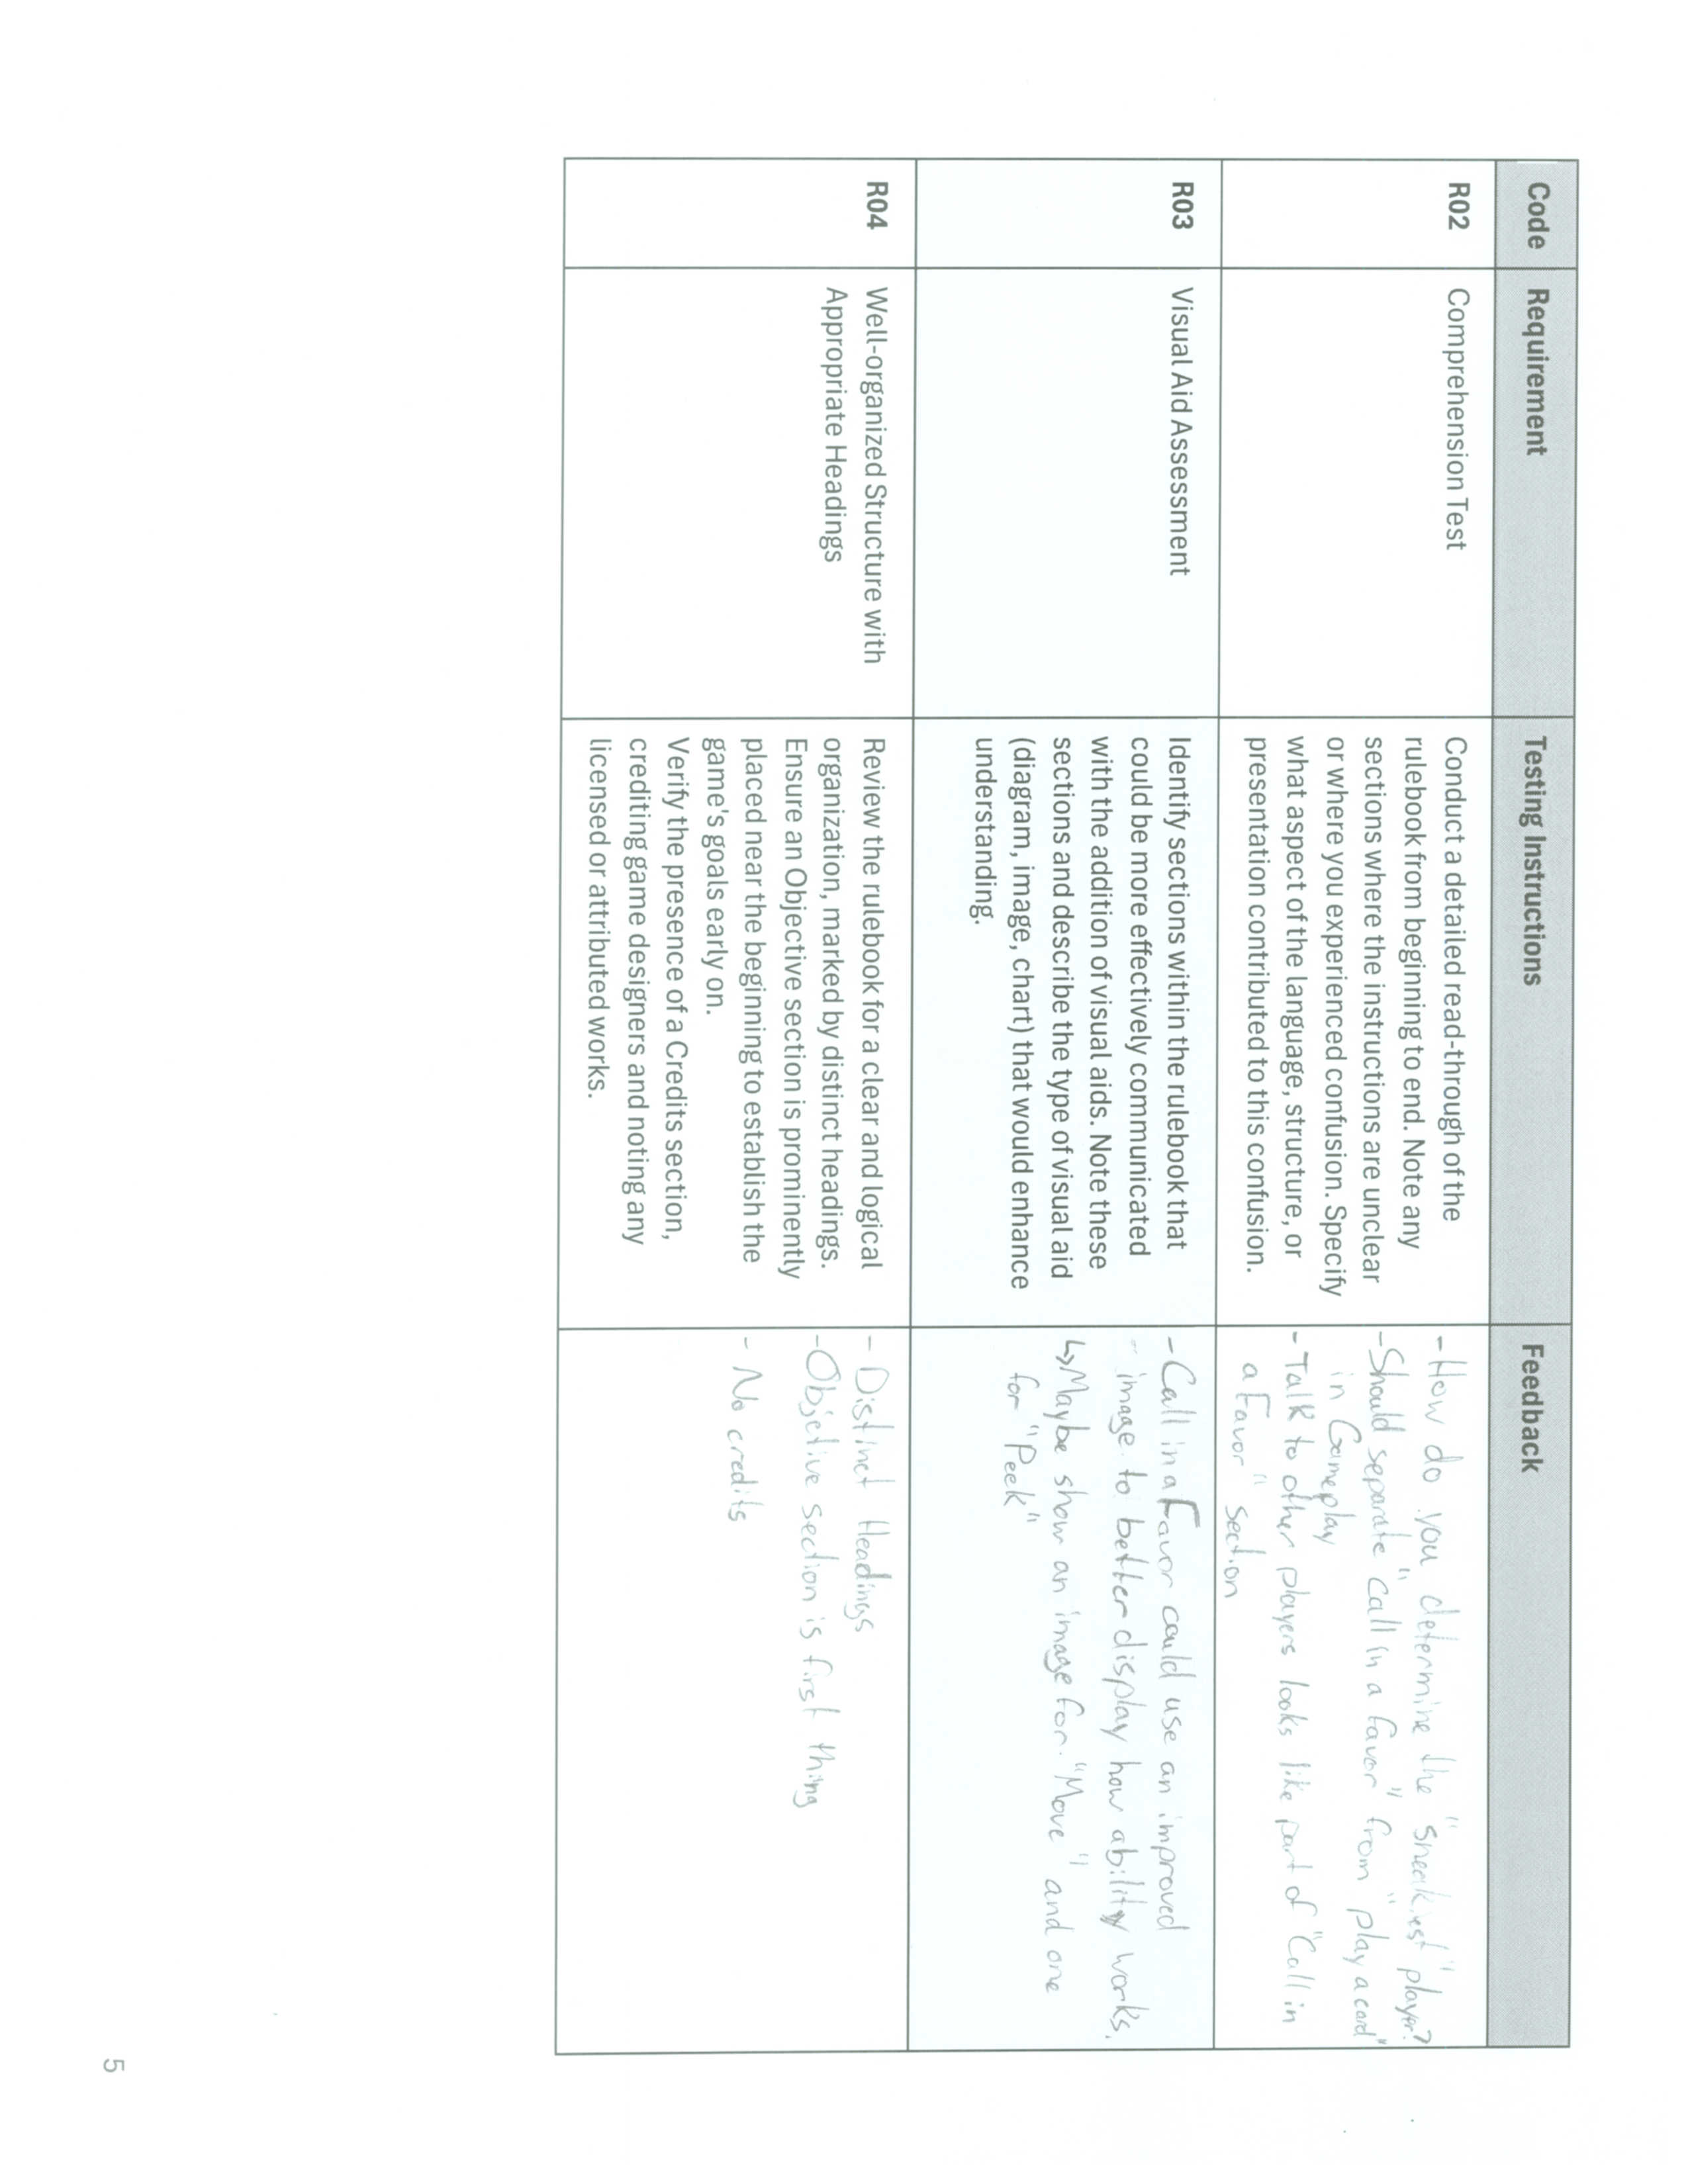 Code Requirement Testing Instructions Feedback
R02 Comprehension Test
Conduct a detailed read-through of the
rulebook from beginning to end. Note any
sections where the instructions are unclear
or where you experienced confusion. Specify
what aspect of the language, structure, or
presentation contributed to this confusion.
- How do you determine the "sneakiest" player?
- Should separate "Call in a favor" from "play a card"
in Gameplay
- Talk to other players looks like part of "Call in
a Favor" section
R03 Visual Aid Assessment
Identify sections within the rulebook that
could be more effectively communicated
with the addition of visual aids. Note these
sections and describe the type of visual aid
(diagram, image, chart) that would enhance
understanding.
- Call in a Favor could use an improved
image to better display how ability works.
↳ Maybe show an image for "Move" and one
for "Peek"
R04 Well-organized Structure with
Appropriate Headings
Review the rulebook for a clear and logical
organization, marked by distinct headings.
Ensure an Objective section is prominently
placed near the beginning to establish the
game's goals early on.
Verify the presence of a Credits section,
crediting game designers and noting any
licensed or attributed works.
- Distinct Headings
- Objective section is first thing
- No credits
5